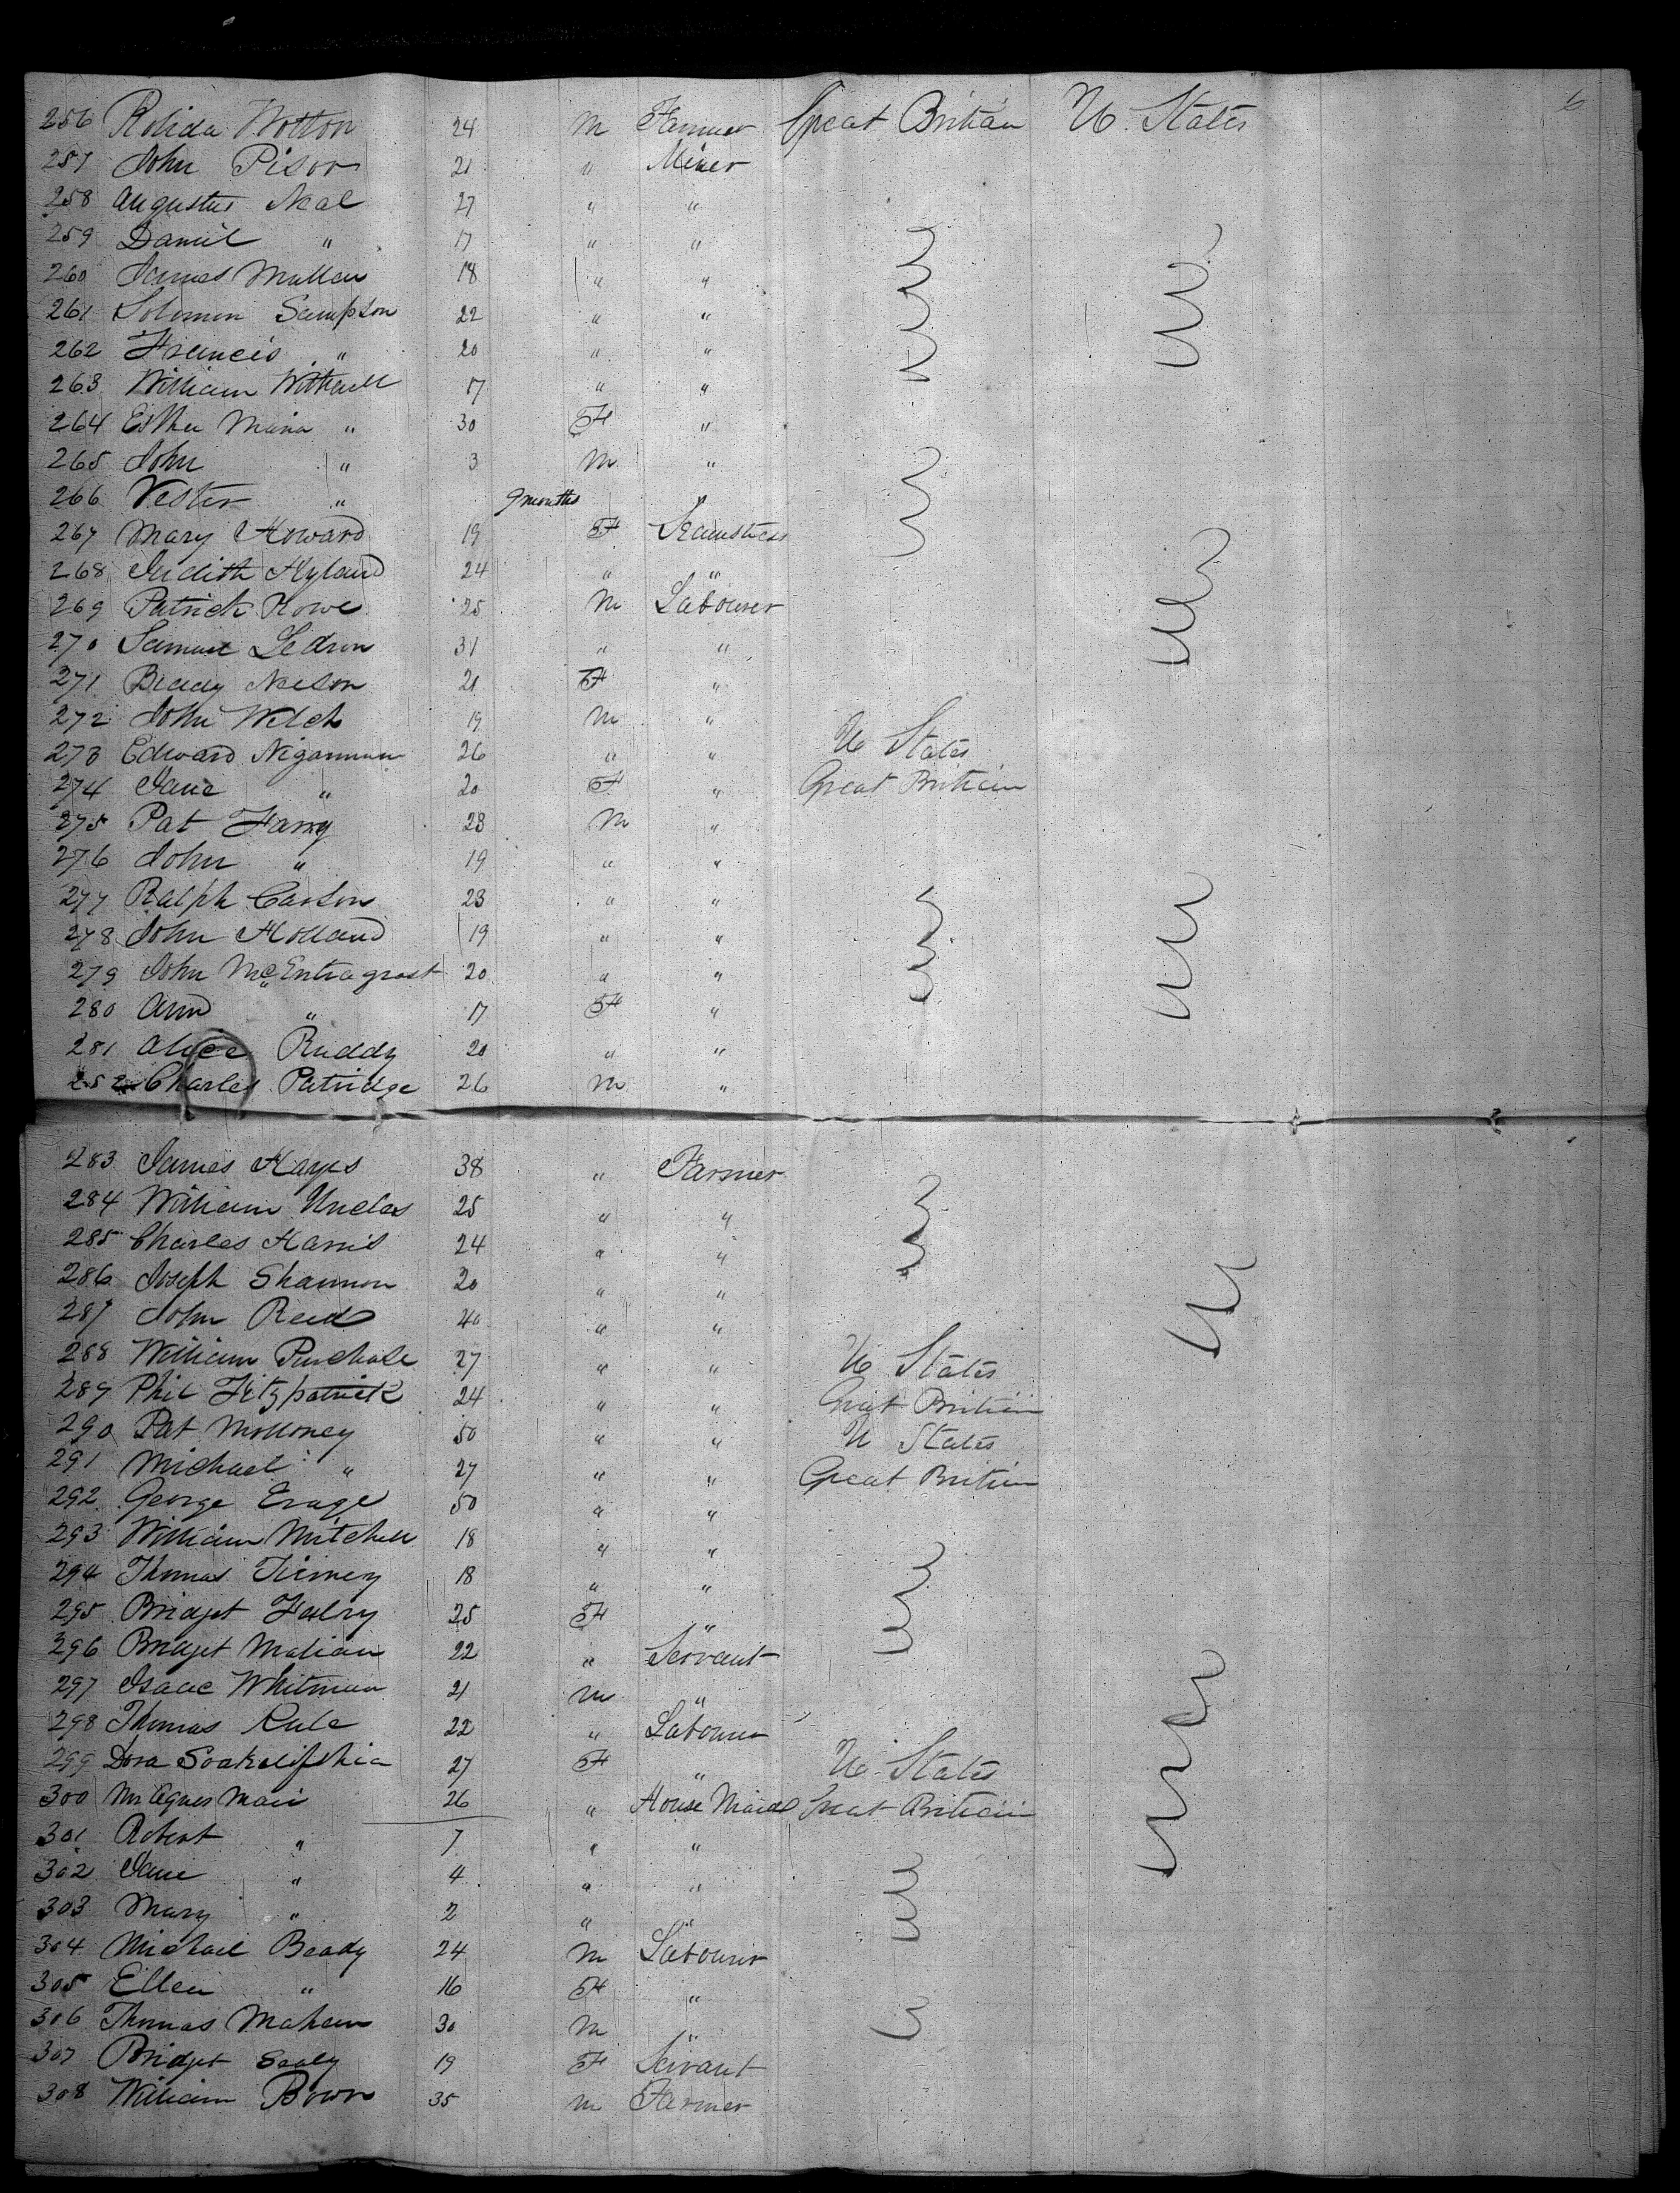 6
256 Rolida Wotton 24 M Farmer Great Britain U. States
257 John Pisor 21 " Miner
258 Augustus Neal 27 " "
259 Daniel " 17 " "
260 James Mullen 18 " "
261 Solomon Sampson 22 " "
262 Francis " 20 " "
263 William Withall 17 " "
264 Esther Maria " 30 F "
265 John " 3 M "
266 Vester " 9 months "
267 Mary Howard 19 F Seamstress
268 Judith Hyland 24 " "
269 Patrick Howe 25 M Labourer
270 Samuel Ledron 31 " "
271 Nelson 21 F "
272 John Welch 19 M "
273 Edward 26 " " U States
274 Jane " 20 F " Great Britain
275 Pat Farry 23 M "
276 John " 19 " "
277 Ralph Carson 23 " "
278 John Holland 19 " "
279 John 20 " "
280 Ann " 17 F "
281 Alice Ruddy 20 " "
282 Charles Patridge 26 M "
283 James Hayes 38 " Farmer
284 William Uncles 25 " "
285 Charles Harris 24 " "
286 Joseph Shannon 20 " "
287 John Reid 40 " "
288 William Purchase 27 " " U States
289 Phil Fitzpatrick 24 " " Great Britain
290 Pat Molloney 50 " " U States
291 Michael " 27 " " Great Britain
292 George 50 " "
293 William Mitchell 18 " "
294 Thomas Tierney 18 " "
295 Bridget 25 F "
296 Bridget 22 " Servant
297 Isaac Whitman 21 M "
298 Thomas Rule 22 " Labourer
299 Dora 27 F " U. States
300 Mrs Agnes Mair 26 " House Maid Great Britain
301 Robert " 7 " "
302 Jane " 4 " "
303 Mary " 2 " "
304 Michael Brady 24 M Labourer
305 Ellen " 16 F "
306 Thomas Mahon 30 M "
307 Bridget Scaly 19 F Servant
308 William Bown 35 M Farmer